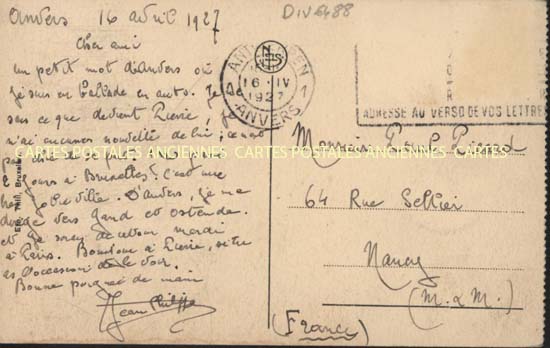 Anvers 16 avril 1927
DIV6488
Cher ami
un petit mot d'Anvers où
je suis en ballade en auto. Je
sais ce que devient Pierre, je
n'ai aucune nouvelle de lui
jours à Bruxelles. C'est une
ville. D'Anvers, je me
dirige vers Gand et Ostende.
et je serai de retour mardi
à Paris. Bonjour à Pierre, si tu
as l'occasion de le voir.
Bonne poignée de main
Jean Philippe
ANTWERPEN
16 IV
1927
1
ANVERS
ADRESSE AU VERSO DE VOS LETTRES
CARTES POSTALES ANCIENNES CARTES POSTALES ANCIENNES CARTES POSTALES ANCIENNES
Monsieur Paul Picard
64 Rue Sellier
Nancy
(M. & M.)
(France)